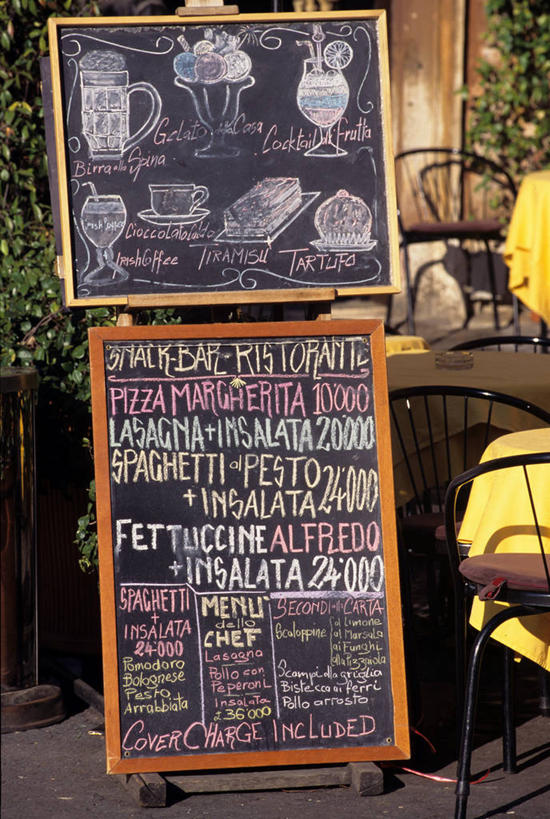 Gelato della Casa
Cocktail di Frutta
Birra alla Spina
Irish Coffee
Cioccolato Caldo
Irish Coffee
TIRAMISU
TARTUFO
SNACK-BAR-RISTORANTE
PIZZA MARGHERITA 10'000
LASAGNA+INSALATA 20'000
SPAGHETTI al PESTO
+INSALATA 24'000
FETTUCCINE ALFREDO
+INSALATA 24'000
SPAGHETTI
+
INSALATA
24-000
Pomodoro
Bolognese
Pesto
Arrabbiata
MENU'
dello
CHEF
Lasagna
Pollo con
Peperoni
Insalata
£ 36'000
SECONDI alla CARTA
Scaloppine
al Limone
al Marsala
ai Funghi
alla Pizzaiola
Scampi alla griglia
Bistecca ai ferri
Pollo arrosto
COVER CHARGE INCLUDED